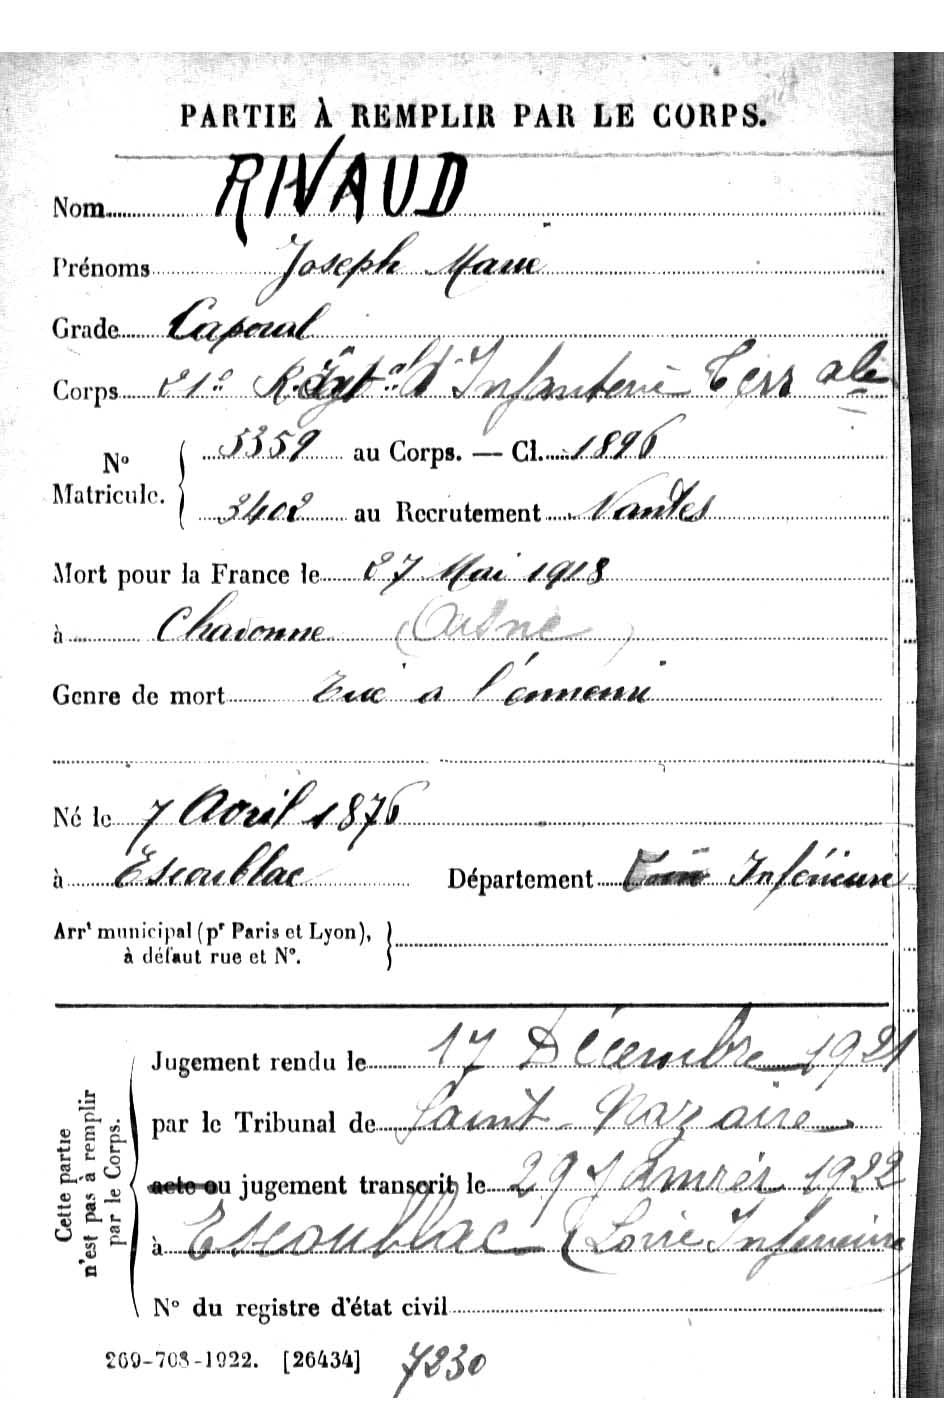 PARTIE À REMPLIR PAR LE CORPS.
Nom RIVAUD
Prénoms Joseph Marie
Grade Caporal
Corps 21e d'Infanterie Terr ale
No Matricule. 5359 au Corps. — Cl. 1896
3402 au Recrutement Nantes
Mort pour la France le 27 Mai 1918
à Chavonne (Aisne)
Genre de mort Tué a l'ennemi
Né le 7 Avril 1876
à Escoublac Département Loire Inférieure
Arrt municipal (pr Paris et Lyon),
à défaut rue et No.
Cette partie
n'est pas à remplir
par le Corps.
Jugement rendu le 17 Décembre 1921
par le Tribunal de Saint-Nazaire
acte ou jugement transcrit le 29 Janvier 1922
à Escoublac (Loire Inférieure)
No du registre d'état civil
269-708-1922. [26434] 7230